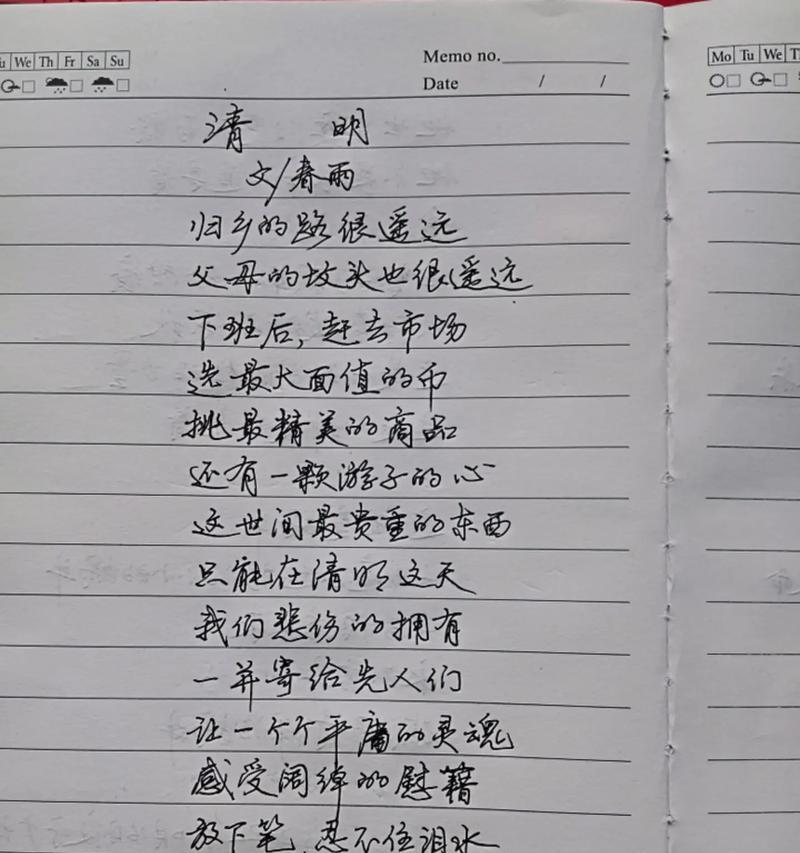 u We Th Fr Sa Su
Memo no.
Date / /
Mo Tu We T
清 明
文/春雨
归乡的路很遥远
父母的坟头也很遥远
下班后,赶去市场
选最大面值的币
挑最精美的商品
还有一颗游子的心
这世间最贵重的东西
只能在清明这天
我们悲伤的拥有
一并寄给先人们
让一个个平庸的灵魂
感受阔绰的慰藉
放下笔,忍不住泪水